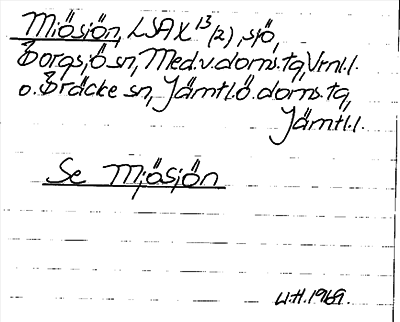 Miösjön, LSA X 13/(2), sjö,
Borgsjö sn, Med.v.doms.tg, Vrnl.l.
o. Bräcke sn, Jämtl.ö.doms.tg,
Jämtl.l.
Se Mjösjön
U.H. 1969.